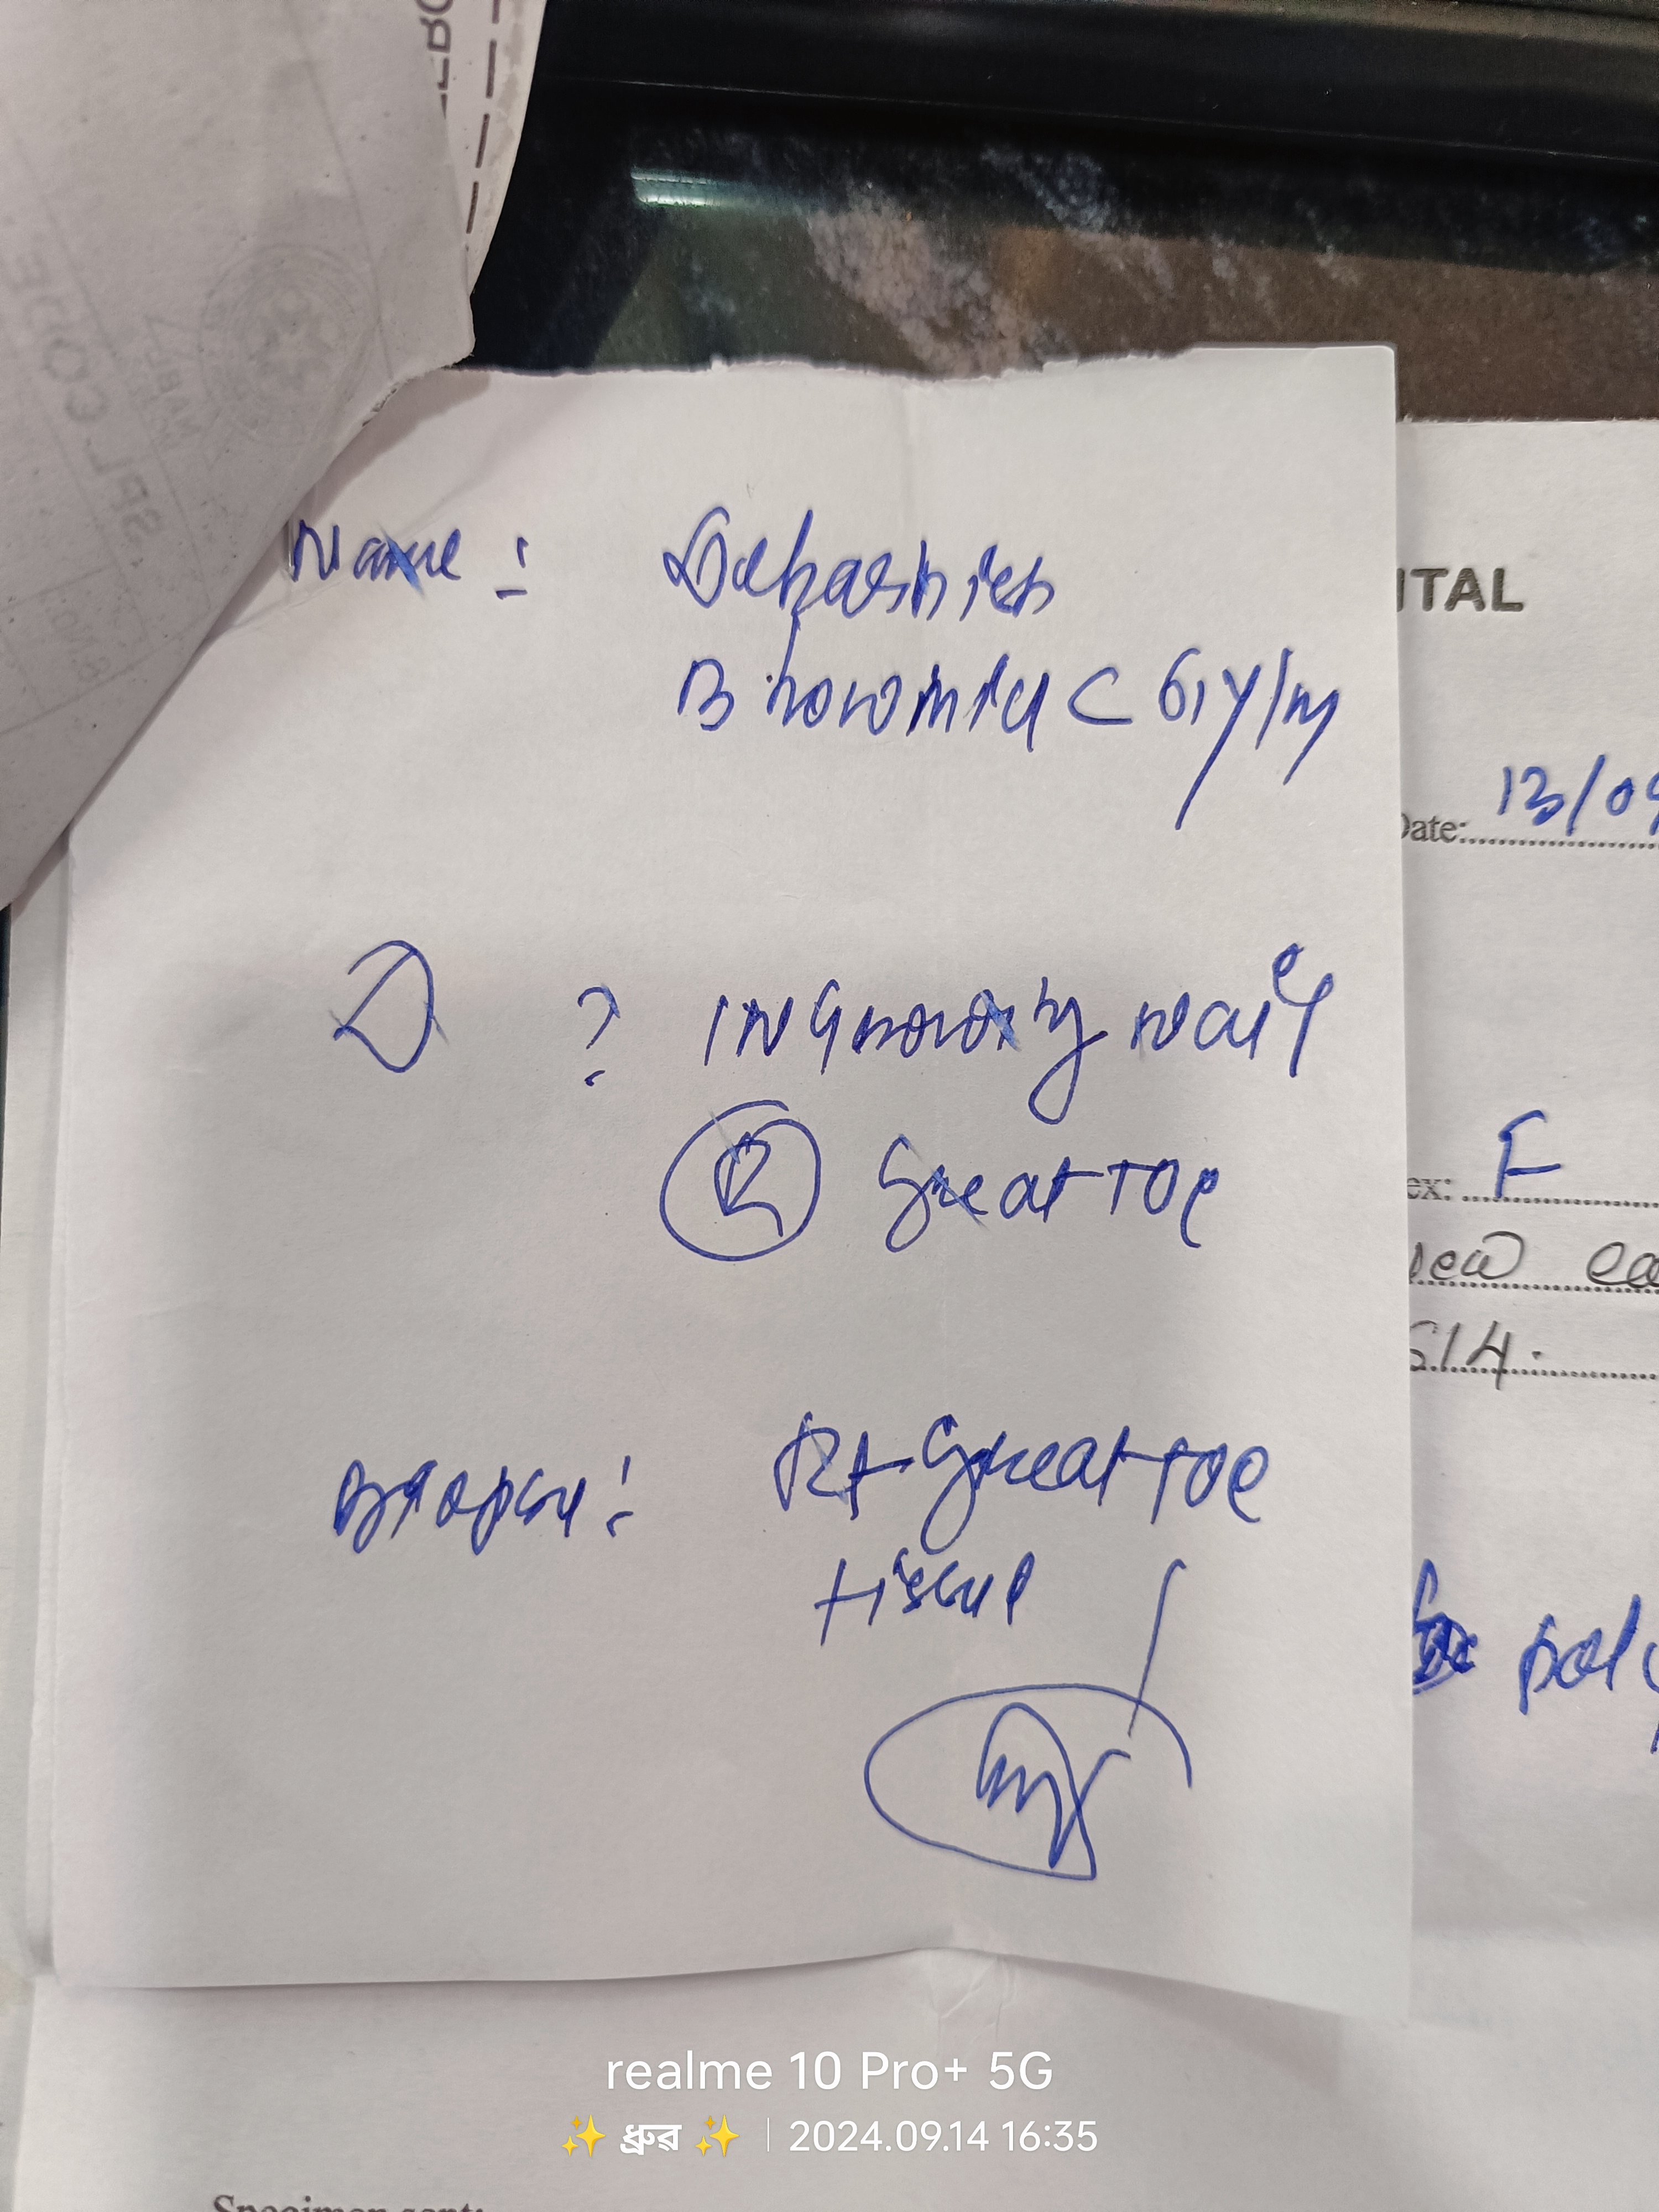 Name :
Debashish
Bhowmick 61y/m
D ? INGrowing nail
R Great TOe
Biopsy :
Rt Great toe
tissue
ITAL
Date: 13/09
ex: F
514.
poly
SPL CODE
Specimen sent:
realme 10 Pro+ 5G
✨ ধ্ৰুৱ ✨ | 2024.09.14 16:35